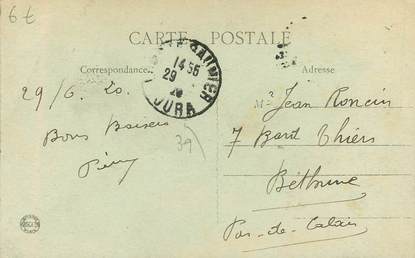 6€
CARTE POSTALE
Correspondance
Adresse
SAUNIER
14 56
29
20
JURA
29/6. 20.
Bons Baisers
39
Mr Jean Roncin
7 Bard Thiers
Béthune
Pas-de-Calais